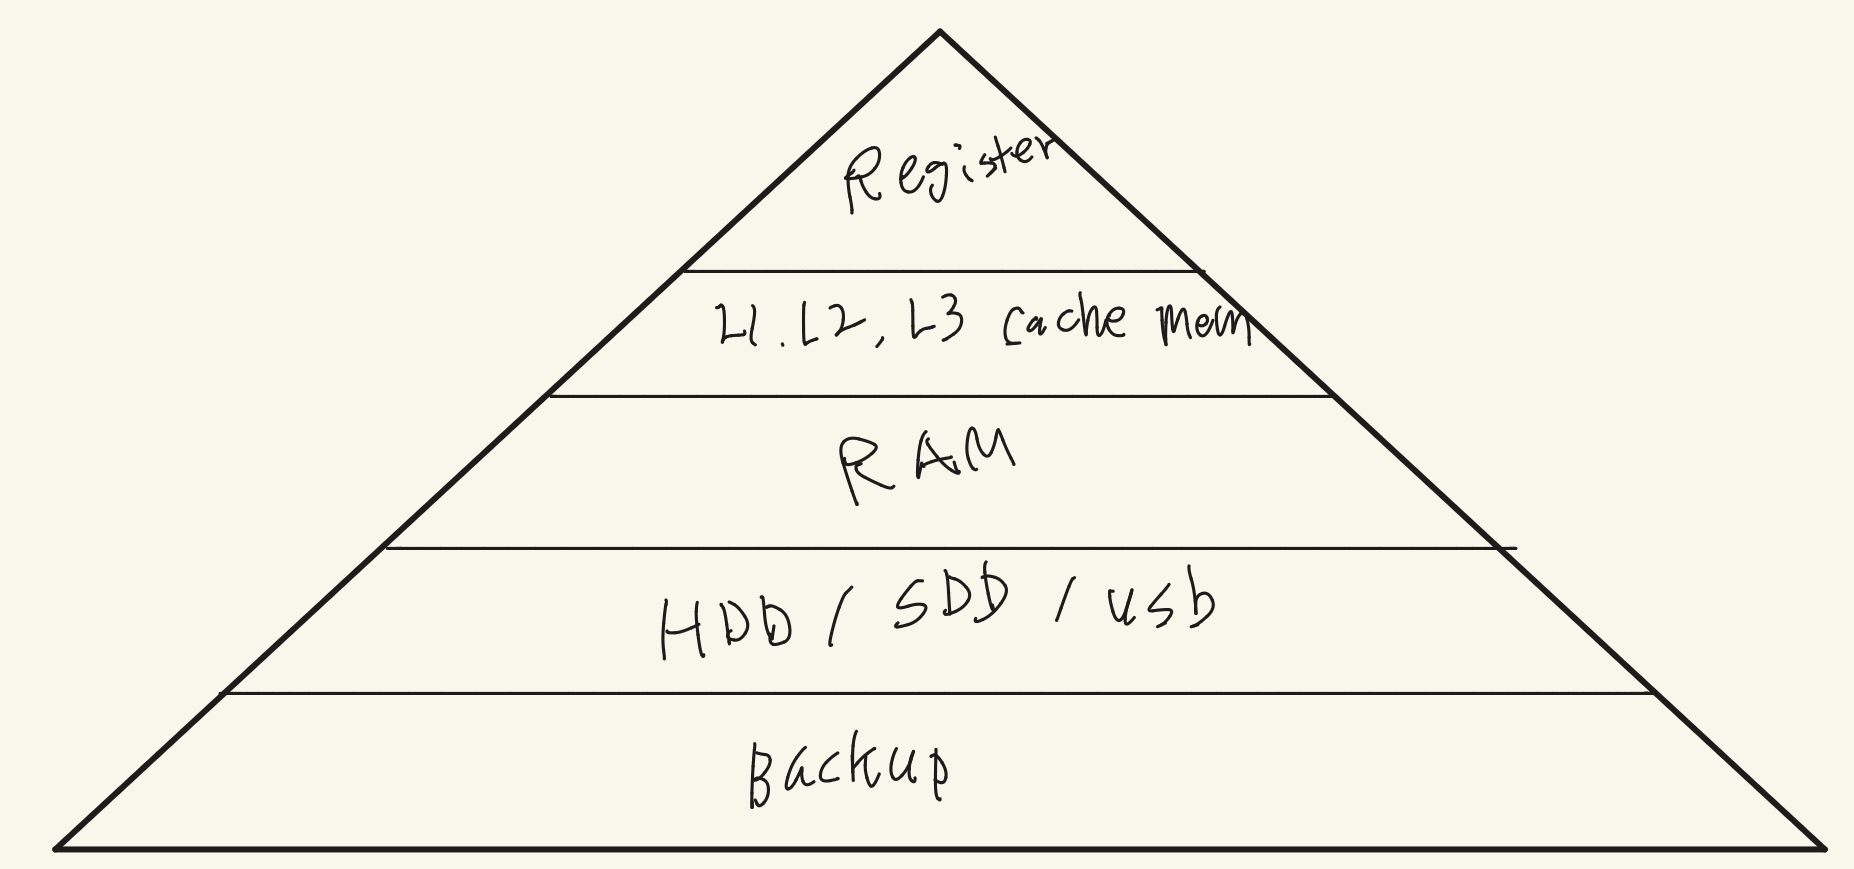 Register
L1. L2, L3 cache mem
RAM
HDD / SDD / usb
Backup